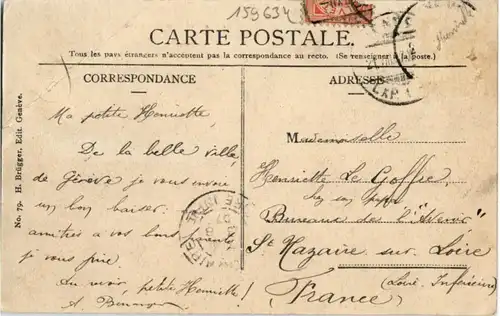 159634
CARTE POSTALE.
Tous les pays étrangers n'acceptent pas la correspondance au recto. (Se renseigner à la poste.)
CORRESPONDANCE
Ma petite Henriette
De la belle ville
de Genève je vous envoie
un bon baiser.
amitiés à vos bons parents,
je vous prie
Au revoir, petite Henriette!
A.
No. 79. H. Brügger, Edit. Genève.
ADRESSE
Mademoiselle
Henriette Le Goffic
chez son
Bureaux de l'"Avenir"
St Nazaire sur Loire
(Loire Inférieure)
France